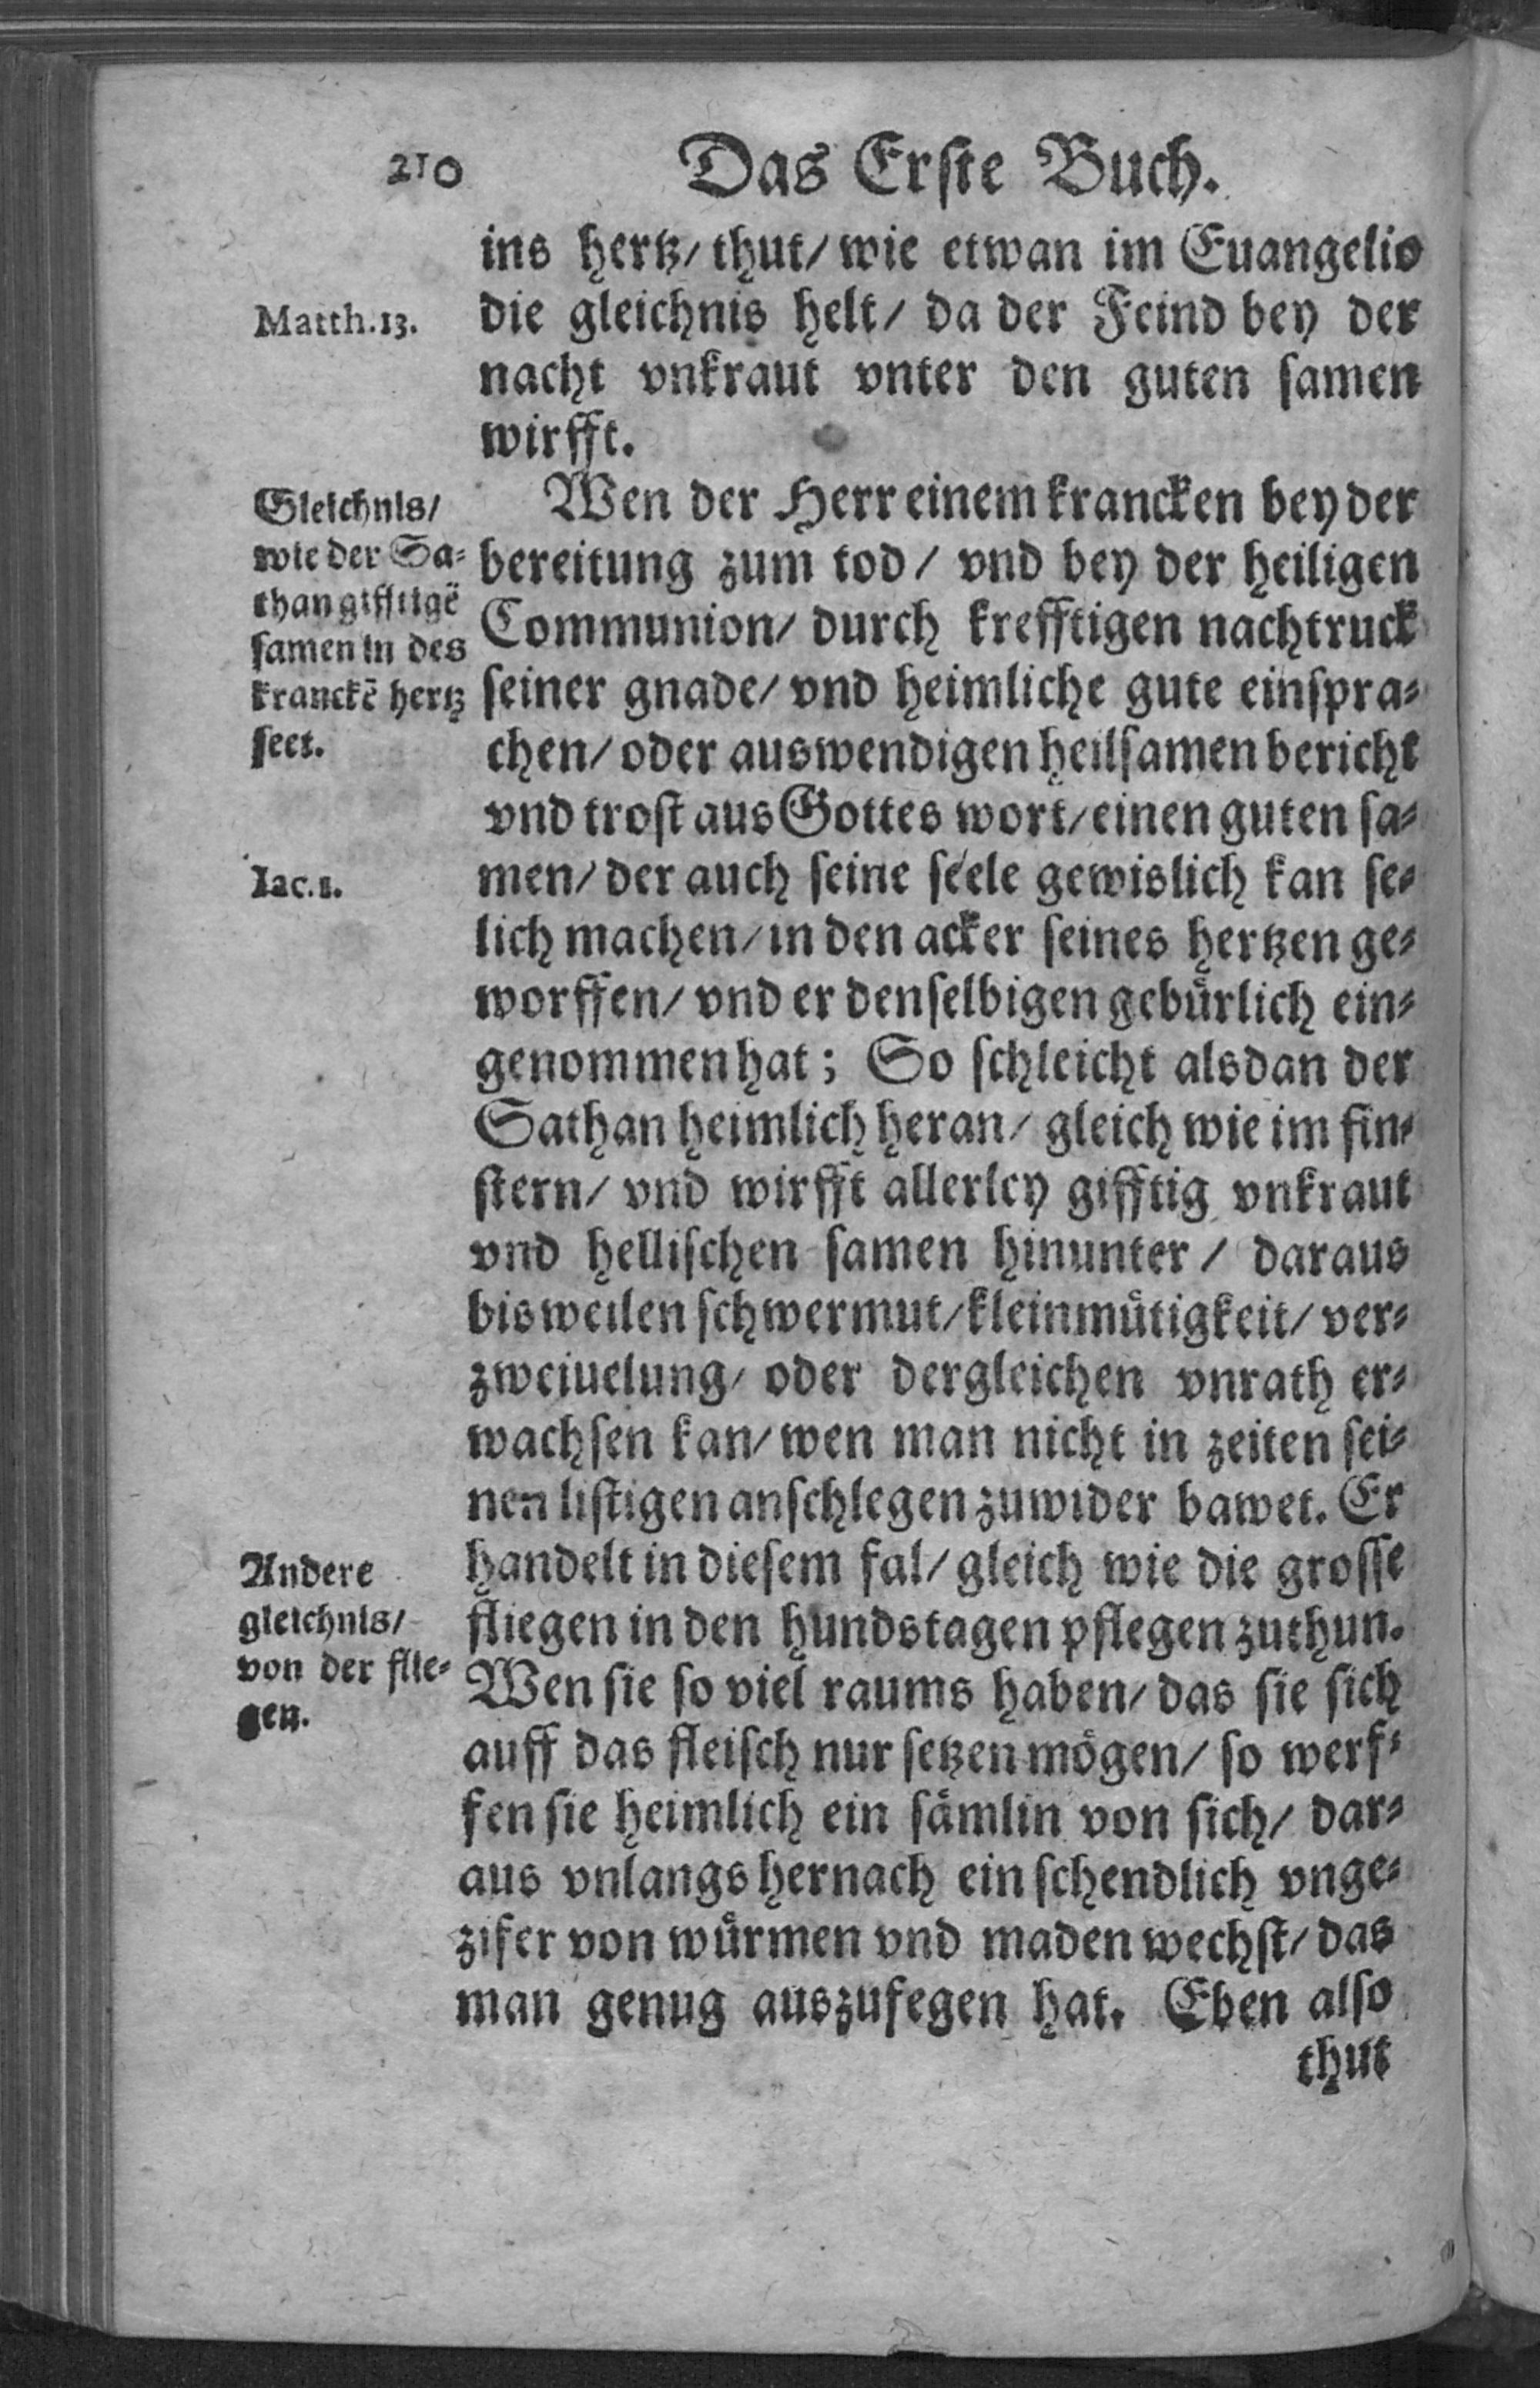 210
Das Erste Buch.
ins hertz/ thut/ wie etwan im Euangelio
Matth.13.
die gleichnis helt/ da der Feind bey der
nacht vnkraut vnter den guten samen
wirfft.
Gleichnis/
wie der Sa-
than gifftigẽ
samen in des
kranckẽ hertz
seet.
Wen der Herr einem krancken bey der
bereitung zum tod/ vnd bey der heiligen
Communion/ durch krefftigen nachtruck
seiner gnade/ vnd heimliche gute einspra-
chen/ oder auswendigen heilsamen bericht
vnd trost aus Gottes wort/ einen guten sa-
Iac.1.
men/ der auch seine seele gewislich kan se-
lich machen/ in den acker seines hertzen ge-
worffen/ vnd er denselbigen gebürlich ein-
genommen hat; So schleicht alsdan der
Sathan heimlich heran/ gleich wie im fin-
stern/ vnd wirfft allerley gifftig vnkraut
vnd hellischen samen hinunter/ daraus
bisweilen schwermut/ kleinmütigkeit/ ver-
zweiuelung/ oder dergleichen vnrath er-
wachsen kan/ wen man nicht in zeiten sei-
nen listigen anschlegen zuwider bawet. Er
Andere
gleichnis/
von der flie-
gen.
handelt in diesem fal/ gleich wie die grosse
fliegen in den hundstagen pflegen zuthun.
Wen sie so viel raums haben/ das sie sich
auff das fleisch nur setzen mögen/ so werf-
fen sie heimlich ein sämlin von sich/ dar-
aus vnlangs hernach ein schendlich vnge-
zifer von würmen vnd maden wechst/ das
man genug auszufegen hat. Eben also
thut